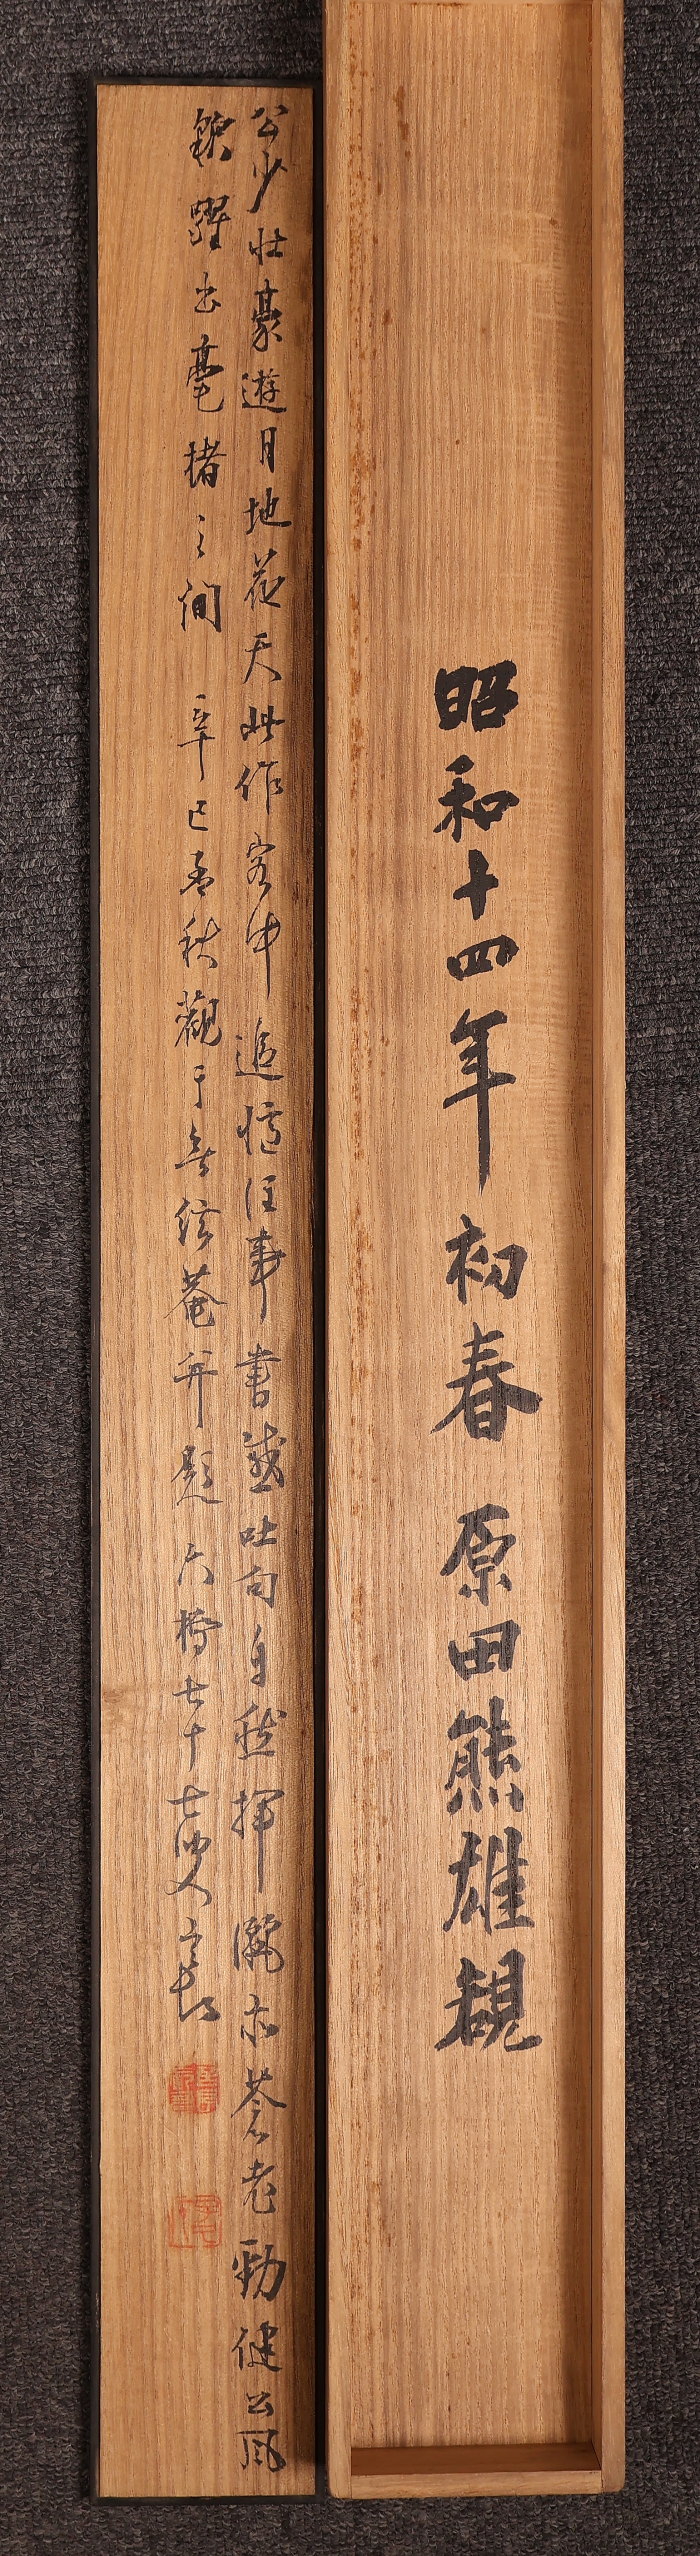 昭和十四年初春 原田熊雄観
公少壮豪遊月地花天此作客中追憶往事書感吐句自然揮灑亦蒼老勁健公風
躍出毫楮之間 辛巳孟秋観于無信菴并題 六橋七十七叟